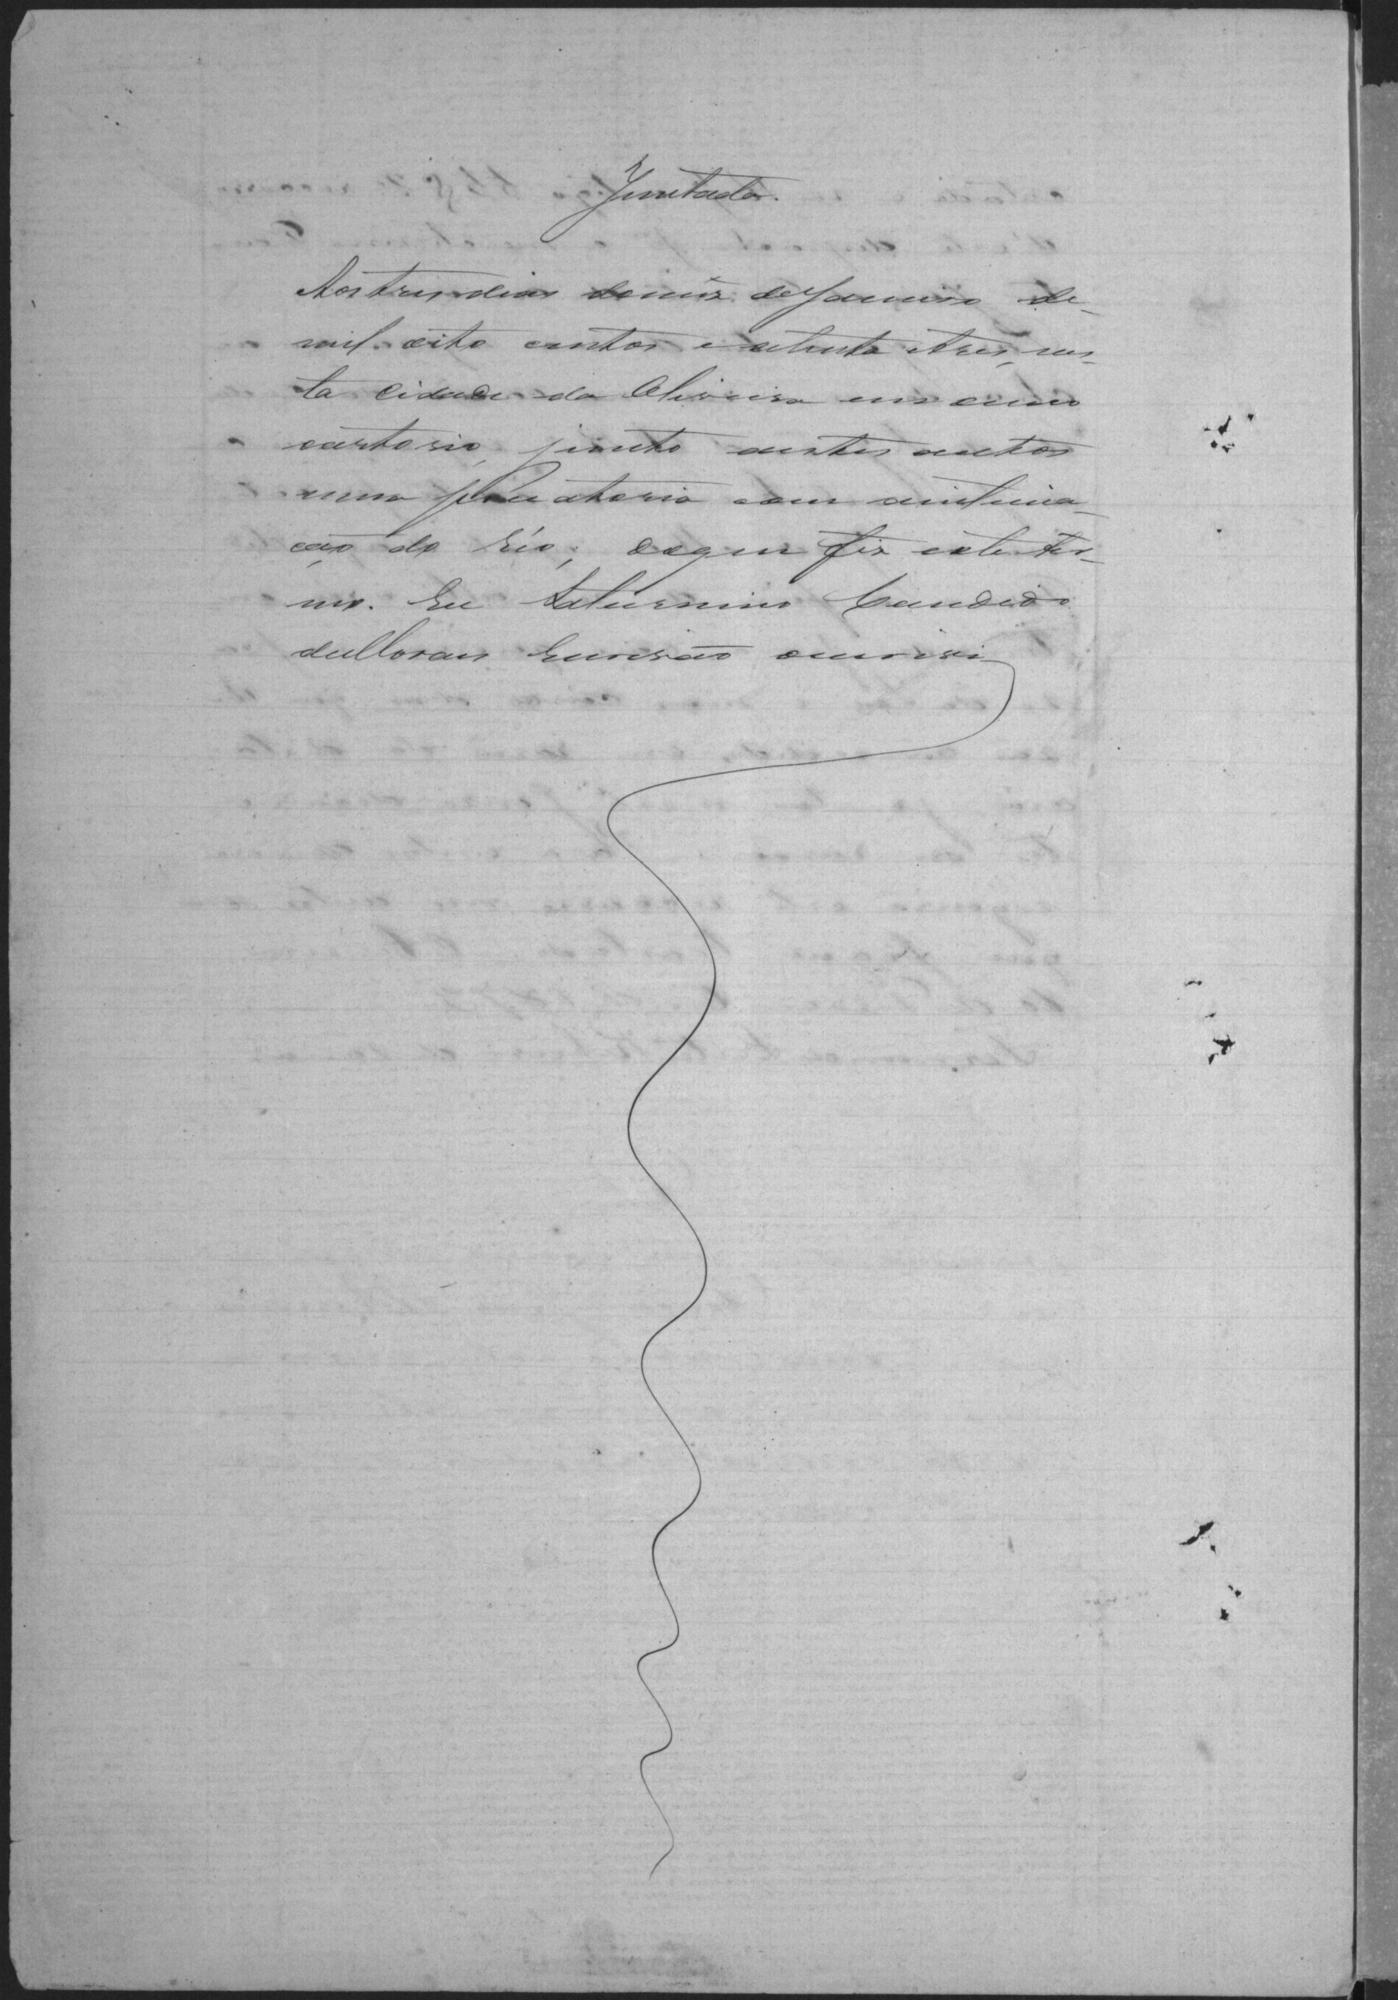 Juntada.
Aos tres dias do mez de Janeiro de
mil oito centos e setenta e tres, nes-
ta Cidade da Oliveira em meu
cartorio, junto a estes autos
uma precatoria com a intima-
ção do Réo; do que fiz este ter-
mo. Eu Saturnino Candido
de Moraes Escrivão o escrevi